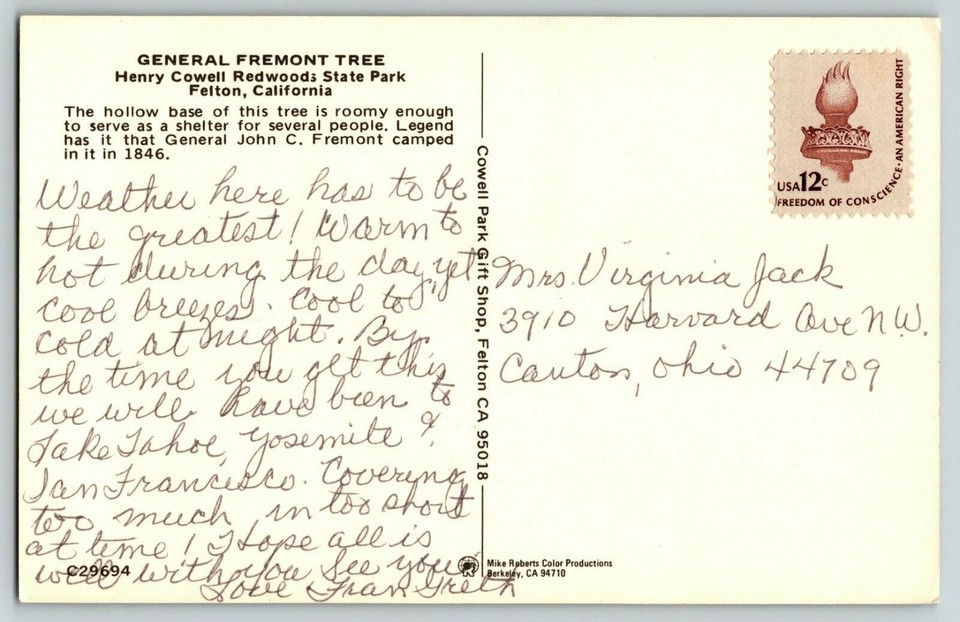 GENERAL FREMONT TREE
Henry Cowell Redwoods State Park
Felton, California
The hollow base of this tree is roomy enough
to serve as a shelter for several people. Legend
has it that General John C. Fremont camped
in it in 1846.
Weather here has to be
the greatest! Warm to
hot during the day, yet
cool breezes. Cool to
cold at night. By
the time you get this
we will have been to
Lake Tahoe, Yosemite &
San Francisco. Covering
too much, in too short
at time! Hope all is
well with you See you
Love Fran Greth
C29694
Cowell Park Gift Shop, Felton CA 95018
Mike Roberts Color Productions
Berkeley, CA 94710
USA 12c
FREEDOM OF CONSCIENCE-AN AMERICAN RIGHT
Mrs Virginia Jack
3910 Harvard Ave N.W.
Canton, Ohio 44709